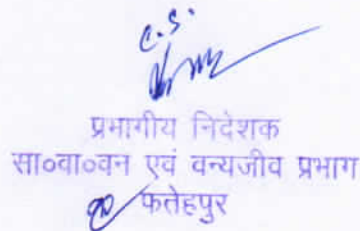 C.S.
प्रभागीय निदेशक
सा०वा०वन एवं वन्यजीव प्रभाग
फतेहपुर